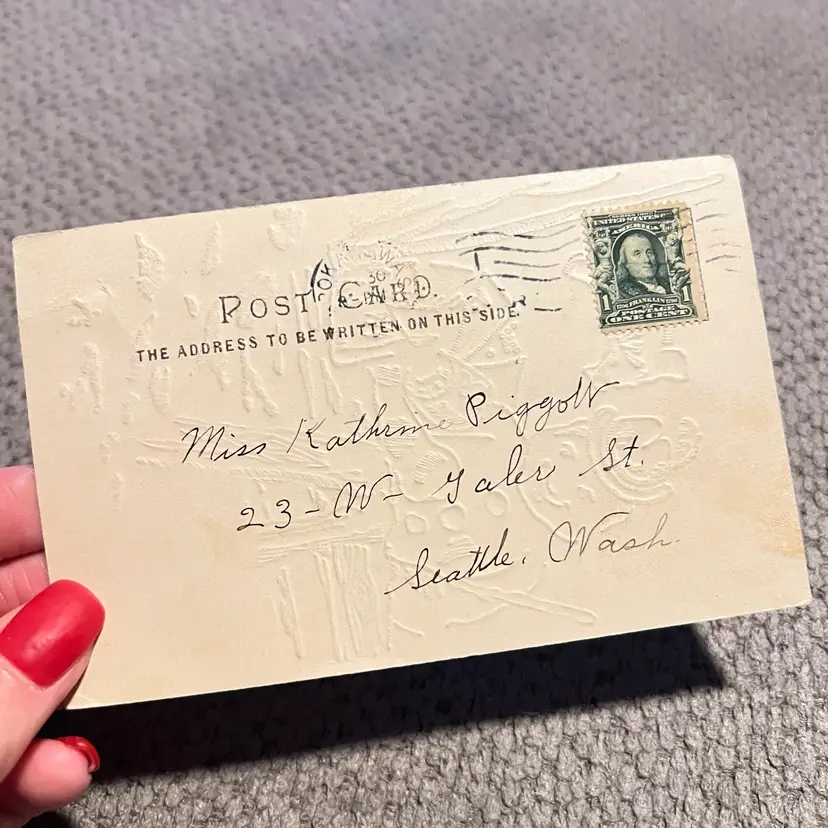 POST CARD.
THE ADDRESS TO BE WRITTEN ON THIS SIDE.
30
UNITED STATES
AMERICA
1 1
1706 FRANKLIN 1790
POSTAGE
ONE CENT
Miss Kathrine Piggott
23 - W - Galer St.
Seattle, Wash.